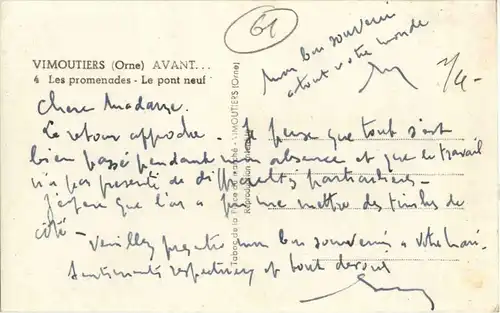 61
VIMOUTIERS (Orne) AVANT...
4 Les promenades - Le pont neuf
mon bon souvenir
à tout votre monde
Chère Madame.
Le retour approche. Je pense que tout s'est
bien passé pendant mon absence et que le travail
n'a pas présenté de difficultés particulières -
J'espère que l'on a pu me mettre des timbres de
côté - Veuillez mon bon souvenir à votre mari.
Sentiments respectueux et tout dévoués
Tabac de la Place du Marché - VIMOUTIERS (Orne)
Reproduction